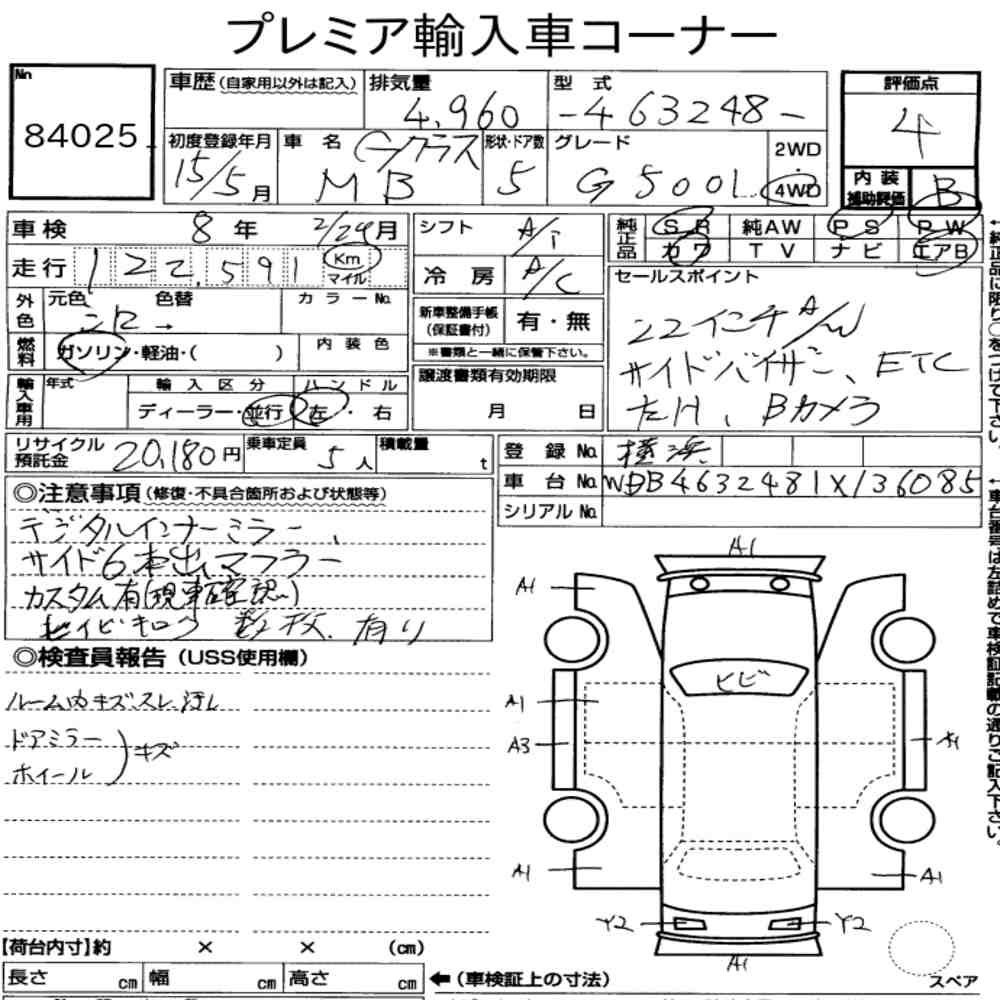 プレミア輸入車コーナー
No
84025
車歴(自家用以外は記入)
排気量
4,960
型式
-463248-
評価点
4
初度登録年月
15/5月
車名
Gクラス
MB
形状・ドア数
5
グレード
G500L
2WD
4WD
内装
補助評価
B
車検
8年 2/24月
走行
122,591
Km
マイル
シフト
A/T
冷房
A/C
純正品
SR 純AW PS PW
カワ TV ナビ エアB
外色
元色 色替
シロ→
カラーNo.
燃料
ガソリン・軽油・( )
内装色
新車整備手帳
(保証書付)
有・無
※書類と一緒に保管下さい。
セールスポイント
22インチA/W
サイドバイザー、ETC
左H、Bカメラ
輸入車用
年式
輸入区分
ディーラー・並行
ハンドル
左・右
譲渡書類有効期限
月 日
リサイクル
預託金
20,180円
乗車定員
5人
積載量
t
登録No.
横浜
車台No.
WDB4632481X136085
シリアルNo.
◎注意事項(修復・不具合箇所および状態等)
デジタルインナーミラー、
サイド6本出マフラー
カスタム有(現車確認)
セイビキロク 数枚.有り
◎検査員報告(USS使用欄)
ルーム内キズ.スレ.汚レ
ドアミラー
ホイール
)キズ
A1
A1
ヒビ
A1
A3
A1
A1
A1
Y2
Y2
A1
スペア
【荷台内寸】約 × × (cm)
長さ cm 幅 cm 高さ cm
←(車検証上の寸法)
←純正品に限り○をつけて下さい。
←車台番号は左詰めで車検証記載の通りご記入下さい。